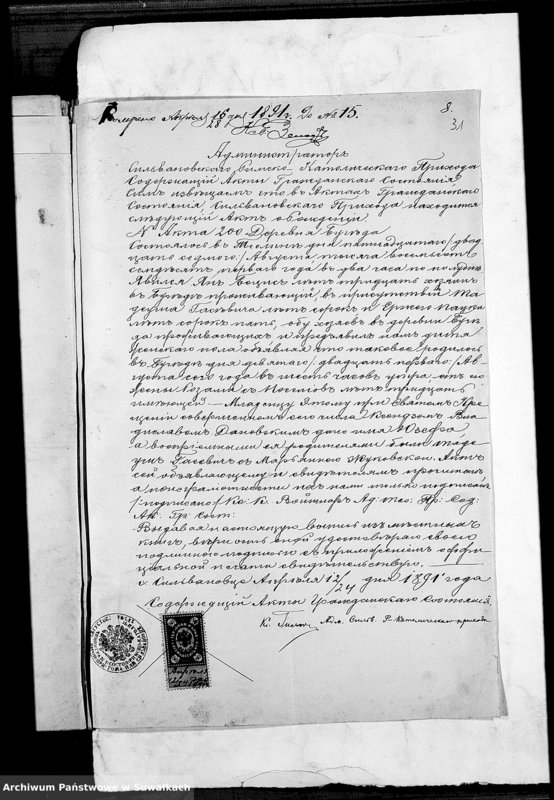 Апреля 16/28 дня 1891 г. До № 15.
8.
31
Администраторъ
Сильвановскаго Римско Католическаго Прихода
Содержащій Акты Гражданскаго Состоянія
Симъ извѣщаетъ что въ Актахъ Гражданскаго
Состоянія Сильвановскаго Прихода находится
слѣдующій Актъ о Рожденіи.
№ Акта 200 Деревня
Состоялось въ дня пятнадцатаго/двад
цать седьмаго/Августа тысяча восемьсотъ
семьдесятъ перваго года въ два часа по полудни
Явился Янъ лѣтъ тридцать хозяинъ
въ проживающій, въ присутствіи
лѣтъ сорокъ и
лѣтъ сорокъ пять, обу хозяевъ въ деревни
проживающихъ и предъявилъ намъ дитя
женскаго пола объявляя что таковое родилось
въ дня девятаго/двадцать перваго/Ав
густа сего года въ шесть часовъ утра, отъ его
жены съ лѣтъ тридцать
имѣющей. Младенцу этому при Святомъ Кре
щеніи совершенномъ сего числа Ксендзомъ Вла
диславомъ дано имя Юзефа
а воспріемниками ея родителями были
съ Маріанною Актъ
сей объявляющему и свидѣтелямъ прочитанъ
а по неграмотности ихъ нами только подписанъ
/подписалъ/ Кс: К. Ад:
Ак: Гр: Сост:
Выдавая настоящую выпись изъ метрическихъ
книгъ, вѣрность оной удостовѣряю своею
подлинною подписью съ приложеніемъ оффи
ціальной печати свидѣтельствую.
с. Сильвановце Апрѣля 12/24 дня 1891 года
Содержащій Акты Гражданскаго Состоянія
К. Адм. Сильв. Р-Католическаго прихода
Archiwum Państwowe w Suwałkach